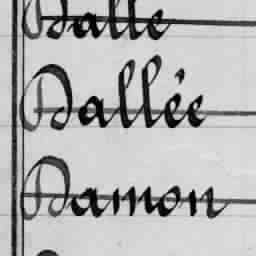 Dalle
Dallée
Damon